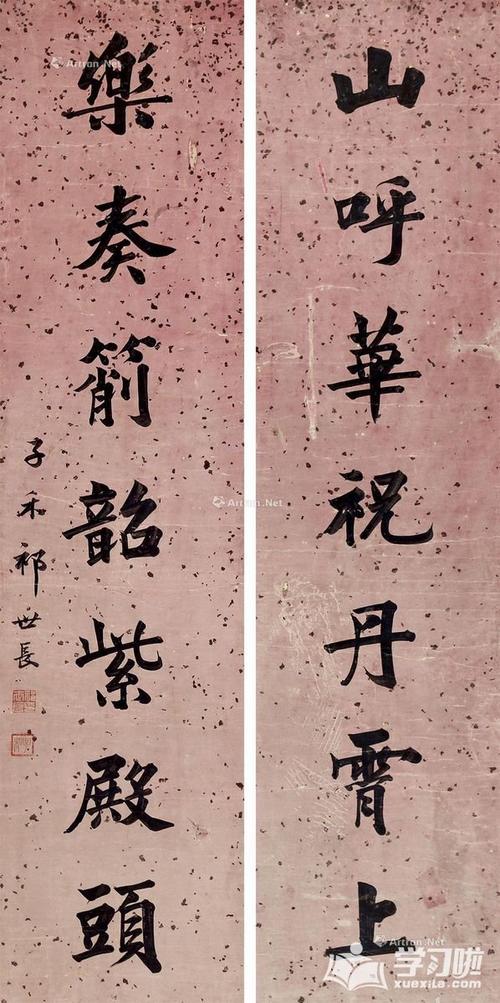 山呼華祝丹霄上
樂奏箾韶紫殿頭
子禾祁世長
Artron.Net
Artron.Net
Artron.Net
学习啦
xuexila.com